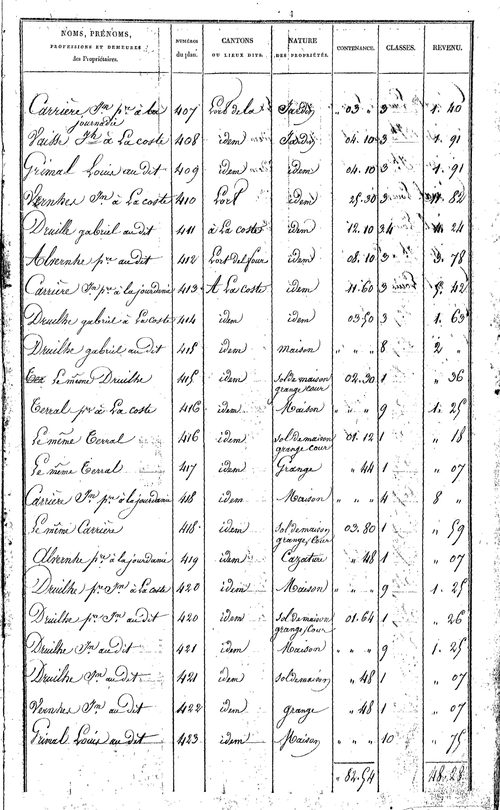 4
NOMS, PRÉNOMS, PROFESSIONS ET DEMEURES des Propriétaires. NUMÉROS du plan. CANTONS OU LIEUX DITS. NATURE DES PROPRIÉTÉS. CONTENANCE. CLASSES. REVENU.
Carrière Jn pre à la journadie 407 Lort de la Jardin " 03 " 3 1. 40
Vaisse Jh à La coste 408 idem Jardin 04. 10 3 1. 91
Grimal Louis au dit 409 idem idem 04. 10 3 1. 91
Vernhes Jn à La coste 410 Lort idem 25. 30 3 82
Druilhe gabriel au dit 411 à La coste idem 12. 10 3 4 24
Alvernhe pre au dit 412 Lort del four idem 08. 10 3 3. 78
Carrière Jn pre à la jourdanie 413 A La coste idem 11. 60 3 5. 42
Druilhe gabriel à La coste 414 idem idem 03 50 3 1. 63
Druilhe gabriel au dit 415 idem maison " " " 8 2 "
Le même Druilhe 415 idem sol de maison grange/cour 02. 30 1 " 36
Terral pre à La coste 416 idem Maison " " " 9 1. 25
Le même Terral 416 idem sol de maison grange cour 01. 12 1 " 18
Le même Terral 417 idem Grange " 44 1 " 07
Carrière Jn pre à la jourdanie 418 idem Maison " " " 4 8 "
Le même Carrière 418 idem sol de maison grange/cour 03. 80 1 " 59
Alvernhe pre à la jourdanie 419 idem Cazature " 48 1 " 07
Druilhe pre Jn à La coste 420 idem Maison " " " 9 1. 25
Druilhe pre Jn au dit 420 idem sol de maison grange/cour 01. 64 1 " 26
Druilhe Jn au dit 421 idem Maison " " " 9 1. 25
Druilhe Jn au dit 421 idem sol de maison " 48 1 " 07
Vernhes Jn au dit 422 idem grange " 48 1 " 07
Grimal Louis au dit 423 idem Maison " " " 10 " 75
" 82. 54 48. 28